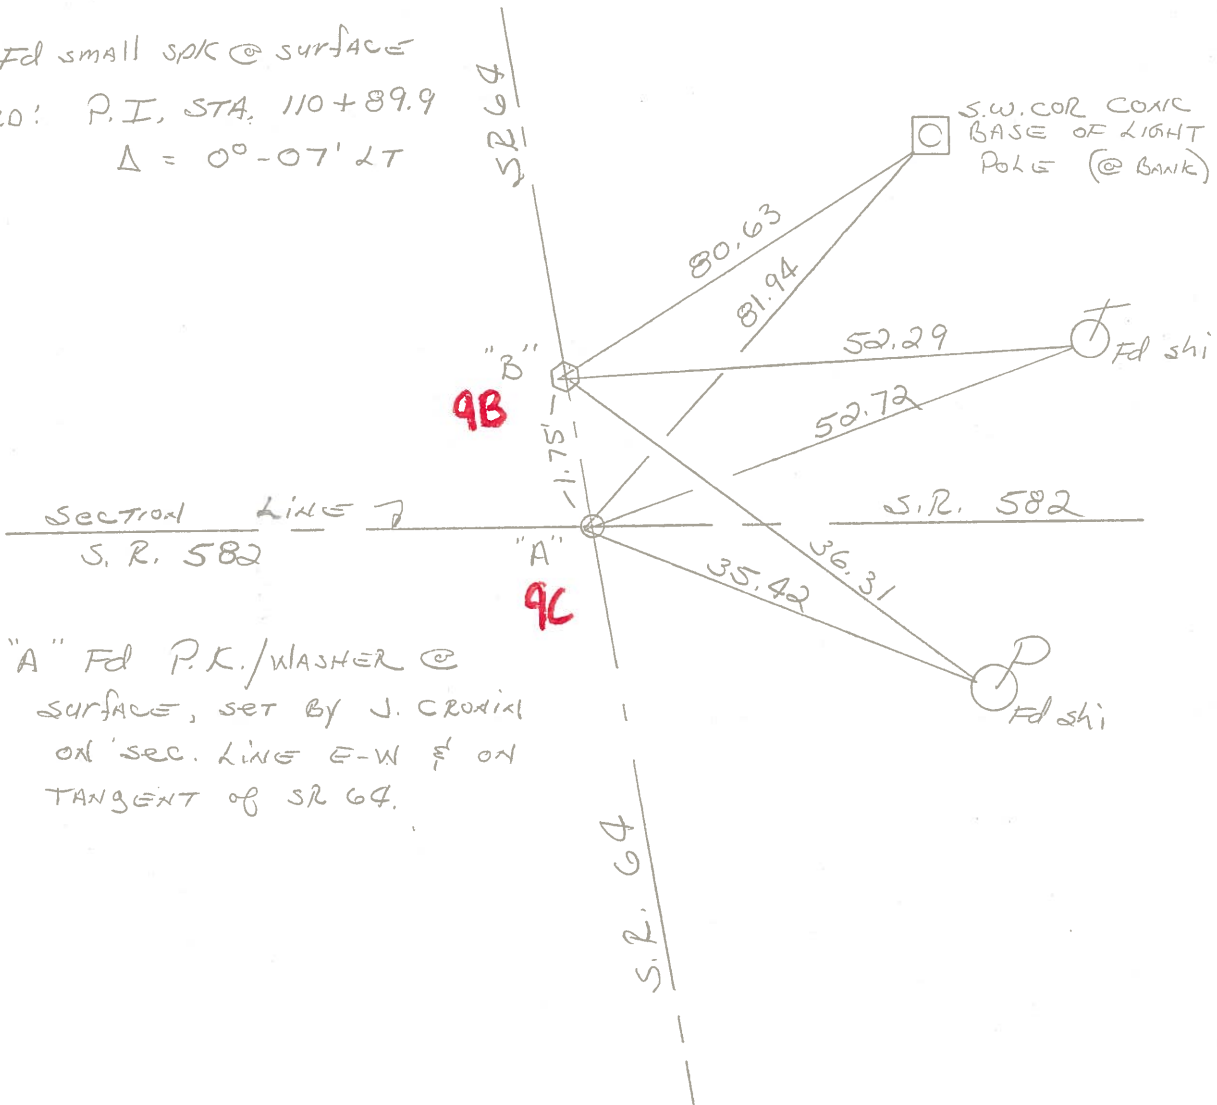 Fd small spk @ surface
P.I. STA. 110+89.9
Δ = 0°-07' LT
SR 64
S.W. COR CONC
BASE OF LIGHT
POLE (@ BANK)
C
80.63
81.94
"B"
9B
52.29
Fd shi
52.72
1.75'
SECTION LINE
S.R. 582
S.R. 582
"A"
9C
36.31
35.42
Fd shi
"A" Fd P.K./WASHER @
surface, set By J. CRONIN
ON sec. LINE E-W & ON
TANGENT of SR 64.
S.R. 64